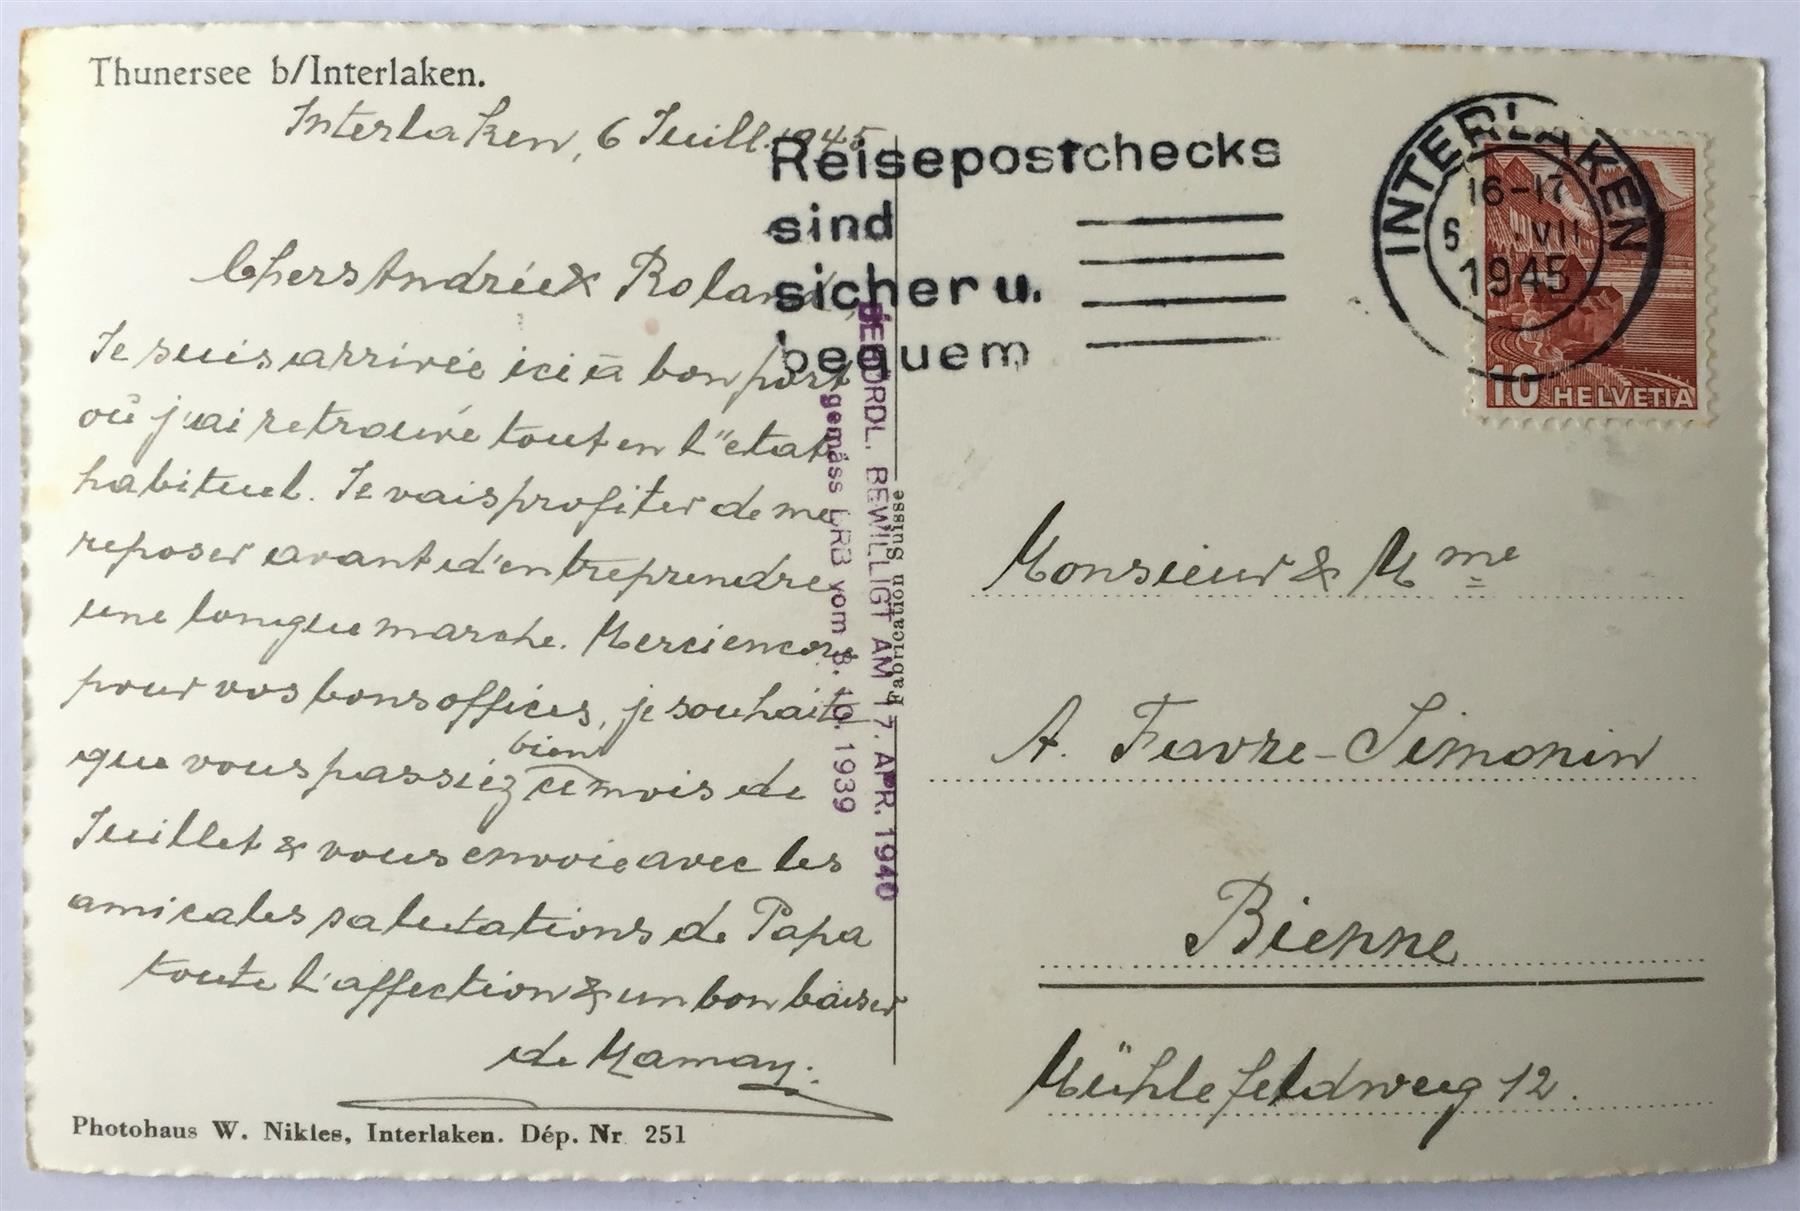 Thunersee b/Interlaken.
Interlaken, 6 Juill. 1945
Chers Andrée & Roland,
Je suis arrivée ici à bon port
où j'ai retrouvé tout en l'état
habituel. Je vais profiter de me
reposer avant d'entreprendre
une longue marche. Merci encore
pour vos bons offices, je souhaite
que vous passiéz bien ce mois de
Juillet & vous envoie avec les
amicales salutations de Papa
toute l'affection & un bon baiser
de Maman.
Photohaus W. Nikles, Interlaken. Dép. Nr 251
BEHÖRDL. BEWILLIGT AM 17. APR. 1940
gemäss BRB vom 3. 10. 1939
Fabrication Suisse
Reisepostchecks
sind
sicher u.
bequem
INTERLAKEN
16-17
6 VII
1945
10 HELVETIA
Monsieur & Mme
A. Favre-Simonin
Bienne
Mühlefeldweg 12.